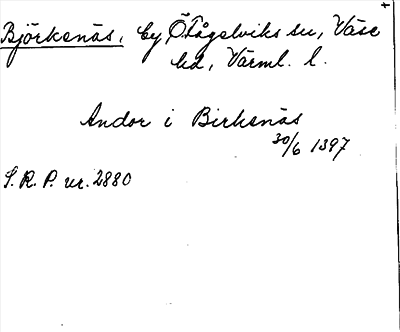 Björkenäs, by, Ö. Fågelviks sn, Väse
hd, Värml. l.
Andor i Birkenäs
30/6 1397
S. R. P. nr. 2880